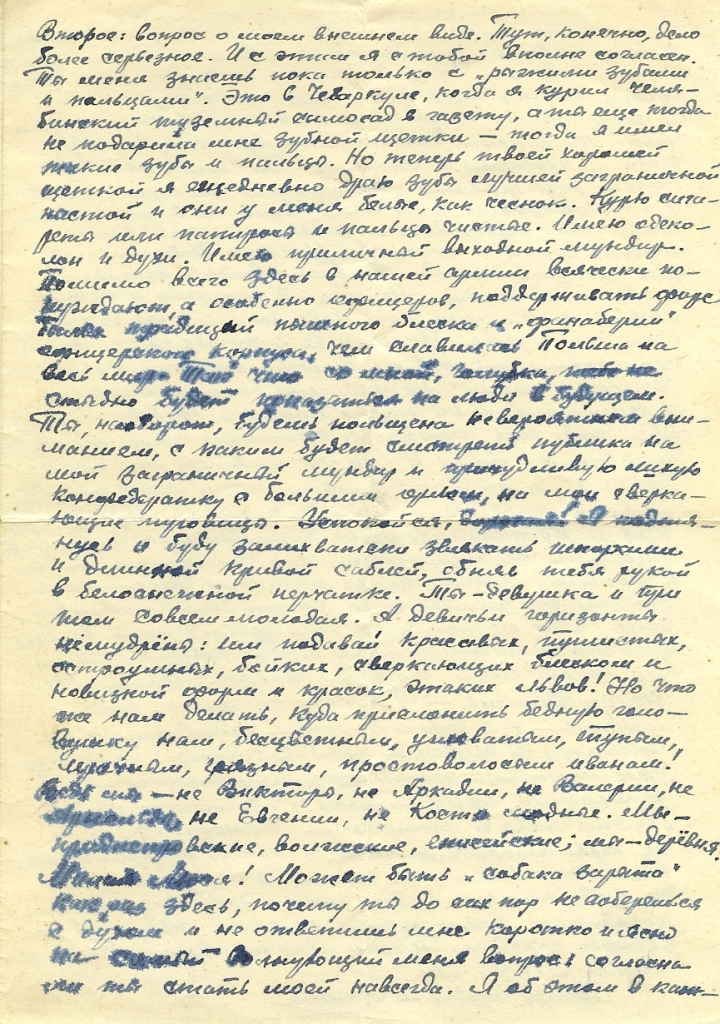 Второе: вопрос о моем внешнем виде. Тут, конечно, дело
более серьезное. И с этим я с тобой вполне согласен.
Ты меня знаешь пока только с „рыжими зубами
и пальцами". Это в Чебаркуле, когда я курил челя-
бинский туземный самосад в газету, а ты еще тогда
не подарила мне зубной щетки — тогда я имел
такие зубы и пальцы. Но теперь твоей хорошей
щеткой я ежедневно драю зубы лучшей заграничной
пастой и они у меня белые, как чеснок. Курю сига-
реты или папиросы и пальцы чистые. Имею одеко-
лон и духи. Имею приличный выходной мундир.
Помимо всего здесь в нашей армии всячески по-
нуждают, а особенно офицеров, поддерживать форс
былых традиций пышного блеска и „фанаберии"
офицерского корпуса, чем славилась Польша на
весь мир. Так что со мной, голубка, тебе не
стыдно будет показаться на люди в будущем.
Ты, наоборот, будешь польщена невероятным вни-
манием, с каким будет смотреть публика на
мой заграничный мундир и причудливую лихую
конфедератку с большим орлом, на мои сверка-
ющие пуговицы. Успокойся, дорогая! Я подтя-
нусь и буду залихватски звякать шпорами
и длинной кривой саблей, обняв тебя рукой
в белоснежной перчатке. Ты — девушка и при
том совсем молодая. А девичьи горизонты
немудрёны: им подавай красивых, пушистых,
остроумных, бойких, сверкающих блеском и
новизной форм и красок, этаких львов! Но что
же нам делать, куда приклонить бедную голо-
вушку нам, бесцветным, угловатым, тупым,
мрачным, грязным, простоволосым иванам!
Ведь мы — не Викторы, не Аркадии, не Валерии, не
не Евгении, не Кости модные. Мы —
приднепровские, волжские, енисейские; мы — деревня.
Милая моя! Может быть „собака зарыта"
как раз здесь, почему ты до сих пор не соберешься
с духом и не ответишь мне коротко и ясно
на самый волнующий меня вопрос: согласна
ли ты стать моей навсегда. Я об этом в каж-